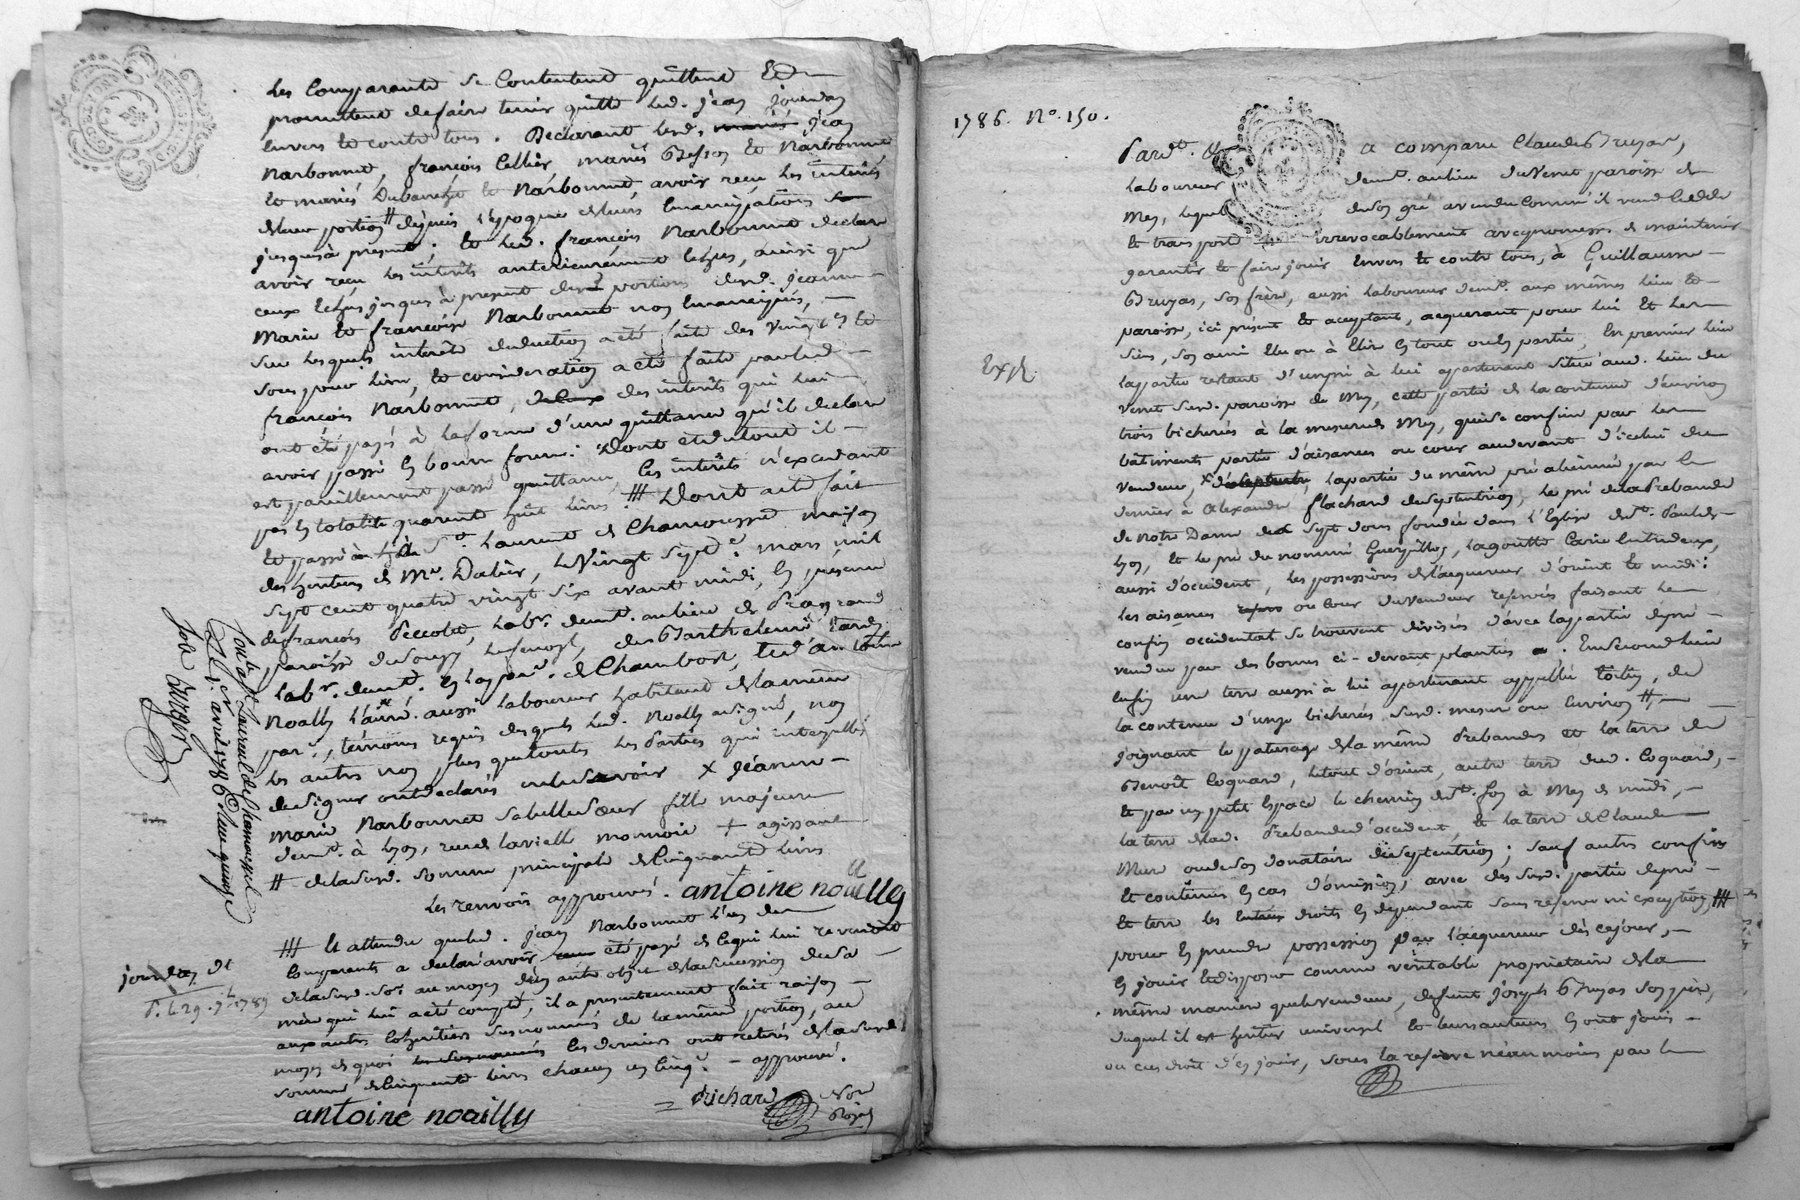 les Comparants se Contentent quittent Et
promettent de faire tenir quitte led. jean jourdan
Envers Et contre tous. Declarant lesd. mariés jean
Narbonnet, françois Cellier, mariés Besson Et Narbonnet
Et mariés Et Narbonnet, avoir reçu les intérêts
de leur portion # depuis l'epoque de leurs Emancipations
jusques à present; Et led. françois Narbonnet declare
avoir reçu les intérêts anterieurement Echus, ainsi que
ceux Echus jusques à present des portions desd. jeanne
Marie Et françoise Narbonnet non Emancipés,
sur lesquels intérêts deduction a été faite des vingt.es Et
sous pour livre, Et consideration a été faite par led.
françois Narbonnet, des intérêts qui lui
ont été payés à la forme d'une quittance qu'il declare
avoir passé En bonne forme. Dont et du tout il
est pareillement passé quittance, les intérêts n'excedant
pas En totalité quarente huit livres. # Dont acte fait
Et passé à St. Laurent de Chamousset maison
des heritiers de Me. Dalier, le Vingt sept.e mars mil
sept cent quatre vingt six avant midi, En présence
de françois Peccolet, lab.r demt. au lieu de
paroisse de Souzy, de Barthelemi
lab.r demt. En la par.e de Chambost, Et d'antoine
Noally aussi laboureur habitant de la même
par.e, témoins requis desquels led. Noally a signé, non
les autres non plus que toutes les Parties qui interpellés
de signer ont declarés ne le savoir X jeanne
Marie Narbonnet sa belle sœur fille majeure
demt. à Lyon, rue de la vieille monnoie + agissant
# de la susd. somme principale de Cinquante livres
les renvois approuvés. antoine noailly
# Et attendu que led. jean Narbonnet l'un des
Comparants a declaré avoir été payé de ce qui lui revenoit
de la susd. so.e au moyen d'un autre objet de la succession de sa
mère qui lui a été compté, il a presentement fait raison
aux autres cohéritiers susnommés de la même portion, au
moyen de quoi les derniers ont retirés de la susd.
somme de Cinquante livres chacun - approuvé.
antoine noailly
Prichard Not. Royal
Con.lé à St. Laurent de Chamousset
Le 1er avril 1786 Reçu quinze
sols
jourdan dt
1786. No. 150.
Exp.
Pard.t a comparu Claude Bruyas,
laboureur demt. au lieu du Venet paroisse de
Mey, lequel de son gré a vendu comme il vend Cede
Et transporte irrevocablement avec promesse de maintenir
garantir Et faire jouir Envers Et contre tous, à Guillaume
Bruyas, son frère, aussi laboureur demt. aux mêmes lieu Et
paroisse, ici present Et acceptant, acquerant pour lui Et les
siens, son ami Elu ou à Elire En tout ou En partie, En premier lieu
la partie restant d'un pré à lui appartenant situé aud. lieu du
Venet susd. paroisse de Mey, cette partie de la contenue d'environ
trois bicherées à la mesure de Mey, qui se confine par les
bâtiments partie d'aisances ou cour au devant d'icelui du
vendeur, la partie du même pré alienné par le
dernier à Alexandre flachard de septentrion, le pré de la Prebande
de Notre Dame de sept dons fondée dans l'Eglise de St. Paul de
Lyon, Et le pré du nommé la goutte Entre deux,
aussi d'occident, les possessions de l'acquereur d'orient Et midi;
les aisances ou cour du vendeur reservés faisant le
confin occidental se trouvent divisés d'avec la partie de pré
vendue par des bornes ci-devant plantées. En second lieu
enfin une terre aussi à lui appartenant appellée tortier, de
la contenue d'onze bicherées susd. mesure ou Environ #
joignant le paturage de la même Prebande Et la terre de
Benoit Coquard, le tout d'orient, autre terre dud. Coquard,
Et par un petit Espace le chemin de St. foy à Mey de midi,
la terre de lad. Prebande d'occident, Et la terre de Claude
Mur ou de son donataire de septentrion; sauf autres confins
Et contenues En cas d'omission, avec des susd. partie de pré
Et terre les Entiers droits En dependant sans reserve ni exception #
pour En prendre possession par l'acquereur dès ce jour,
En jouir Et disposer comme véritable proprietaire de la
même manière que le vendeur, defunt joseph Bruyas son père,
duquel il est heritier universel Et leurs auteurs En ont joui
ou eus droit d'en jouir, sous la reserve néanmoins par le